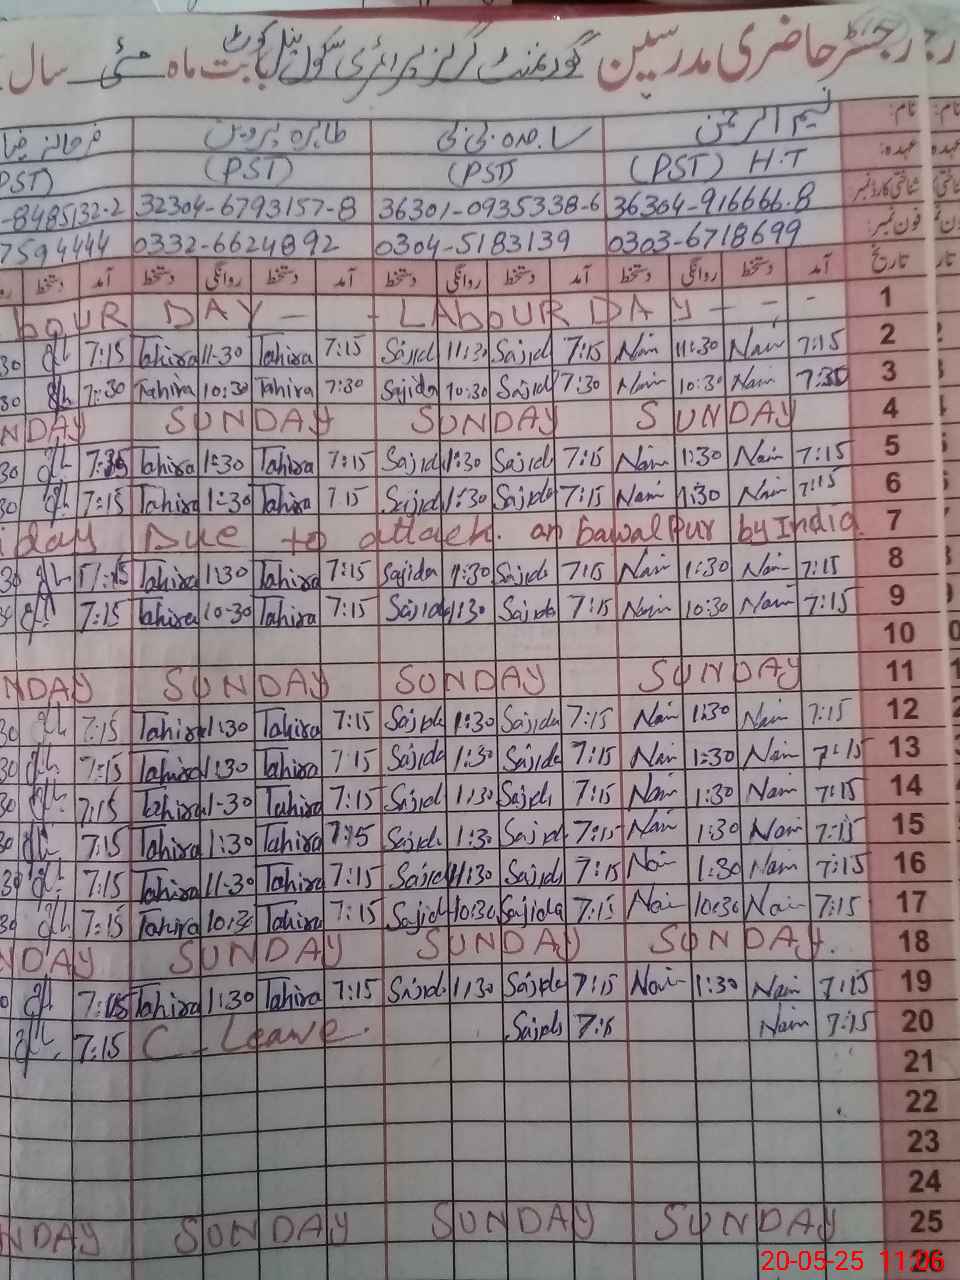 رجسٹر حاضری مدرسین گورنمنٹ گرلز پرائمری سکول بابت ماہ مئی سال
نام: نسیم الرحمن ساجدہ بی بی طاہرہ پروین
عہدہ: (PST) H.T (PST) (PST) PST)
شناختی کارڈ نمبر 36304-916666-8 36301-0935338-6 32304-6793157-8 -8485132-2
فون نمبر: 0303-6718699 0304-5183139 0332-6624892 7594444
تاریخ آمد دستخط روانگی دستخط آمد دستخط روانگی دستخط آمد دستخط روانگی دستخط آمد دستخط
bOUR DAY - - LAbOUR DAY - - - 1
30 7:15 Tahira 11-30 Tahira 7:15 Sajid 11:30 Sajid 7:15 Nain 11:30 Nain 7:15 2
30 7:30 Tahira 10:30 Tahira 7:30 Sajida 10:30 Sajid 7:30 Nain 10:30 Nain 7:30 3
NDAY SUNDAY SUNDAY SUNDAY 4
30 Tahira 1:30 Tahira 7:15 Sajid 1:30 Sajid 7:15 Nain 1:30 Nain 7:15 5
30 7:15 Tahira 1:30 Tahira 7:15 Sajid 1:30 Sajida 7:15 Nain 1:30 Nain 7:15 6
iday Due to attack. on bawalpur by India 7
30 Tahira 1:30 Tahira 7:15 Sajida 1:30 Sajida 7:15 Nain 1:30 Nain 7:15 8
7:15 Tahira 10-30 Tahira 7:15 Sajida 1:30 Sajida 7:15 Nain 10:30 Nain 7:15 9
10
NDAY SUNDAY SUNDAY SUNDAY 11
30 7:15 Tahira 1:30 Tahira 7:15 Sajida 1:30 Sajida 7:15 Nain 1:30 Nain 7:15 12
30 7:15 Tahira 1:30 Tahira 7:15 Sajida 1:30 Sajida 7:15 Nain 1:30 Nain 7:15 13
30 7:15 Tahira 1-30 Tahira 7:15 Sajid 1:30 Sajid 7:15 Nain 1:30 Nain 7:15 14
30 7:15 Tahira 1:30 Tahira 7:15 Sajida 1:30 Sajid 7:15 Nain 1:30 Nain 7:15 15
30 7:15 Tahira 11-30 Tahira 7:15 Sajid 11:30 Sajid 7:15 Nain 1:30 Nain 7:15 16
30 7:15 Tahira 10:30 Tahira 7:15 Sajid 10:30 Sajida 7:15 Nain 10:30 Nain 7:15 17
NDAY SUNDAY SUNDAY SUNDAY. 18
7:15 Tahira 1:30 Tahira 7:15 Sajida 1:30 Sajida 7:15 Nain 1:30 Nain 7:15 19
7:15 C-Leave. Sajid 7:15 Nain 7:15 20
21
22
23
24
NDAY SUNDAY SUNDAY SUNDAY 25
26
20-05-25 11:06